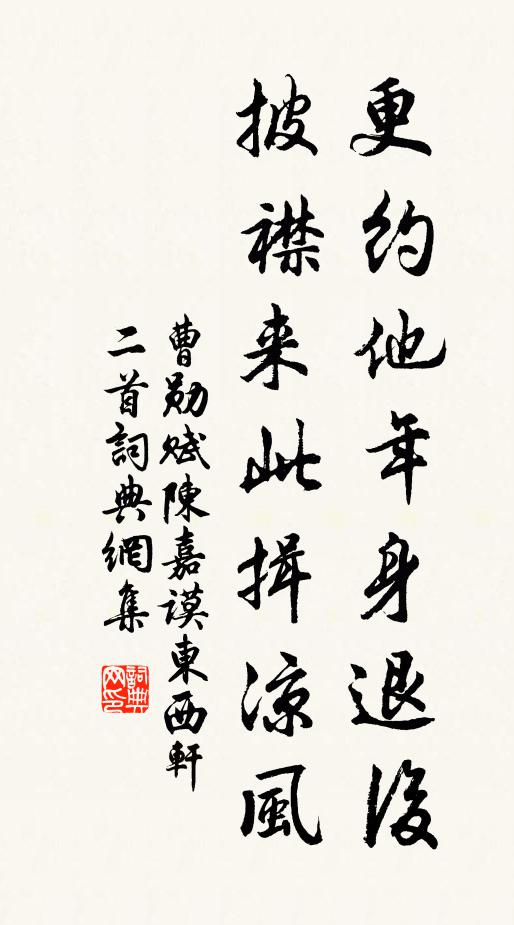 更約他年身退後
披襟来此揖凉風
曹勛賦陳嘉謨東西軒
二首詞典網集
詞典
网印